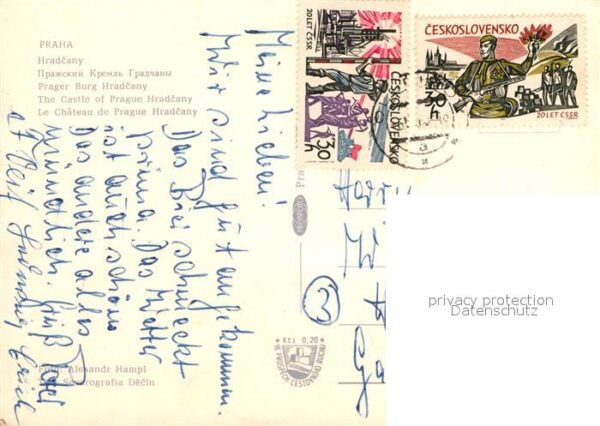 PRAHA
Hradčany
Пражский Кремль Градчаны
Prager Burg Hradčany
The Castle of Prague Hradčany
Le Château de Prague Hradčany
Meine Lieben!
Wir sind gut angekommen.
Das Bier schmeckt
prima. Das Wetter
ist auch schön
Das andere alles
mündlich. Gruß
Erich
Foto: Alexandr Hampl
Severografia Děčín
20 LET ČSSR
ČESKOSLOVENSKO
30 h
ČESKOSLOVENSKO
20 LET ČSSR
Pra
3
Kčs 0,20
VE PROSPĚCH CESTOVNÍHO RUCHU
privacy protection
Datenschutz